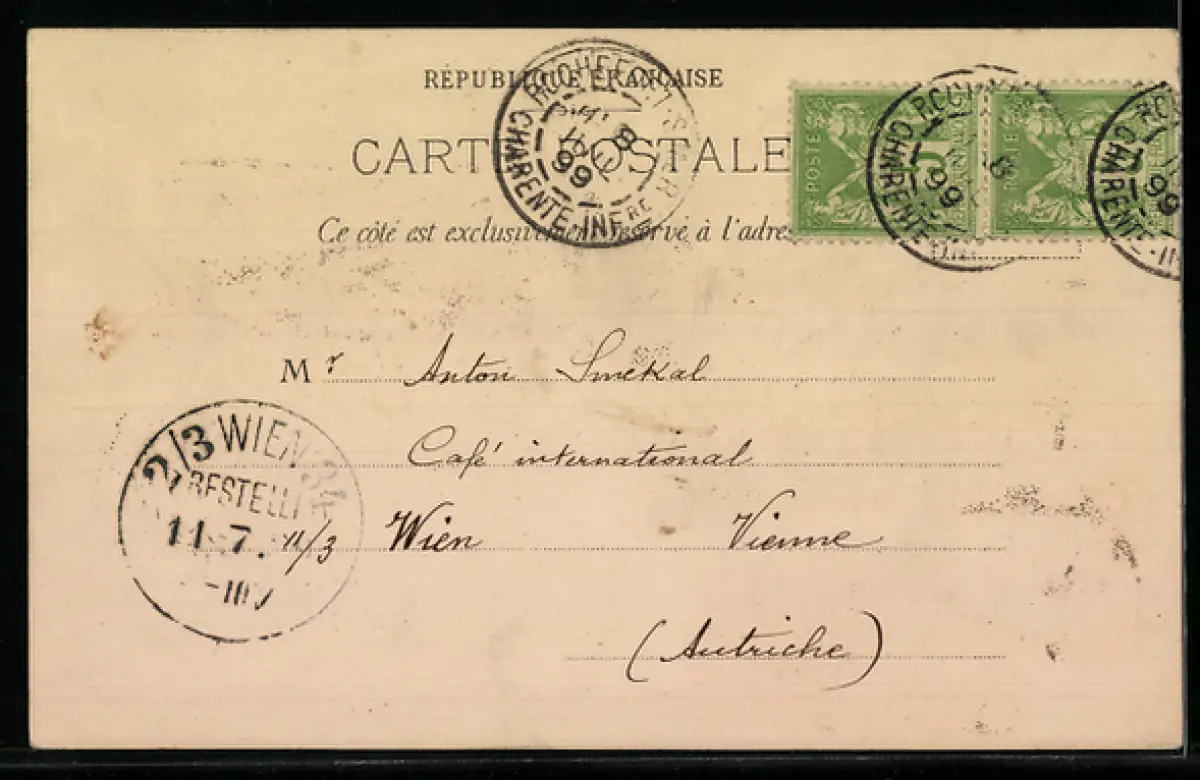 RÉPUBLIQUE FRANÇAISE
CARTE POSTALE
Ce côté est exclusivement réservé à l'adresse
ROCHEFORT S. MER
8
99
CHARENTE-INFRE
POSTE
5
CHARENTE
99
8
5
CHARENTE-
99
Mr Anton Smekal
Café international
11/3 Wien Vienne
(Autriche)
2/3 WIEN
BESTELLT
11 7.